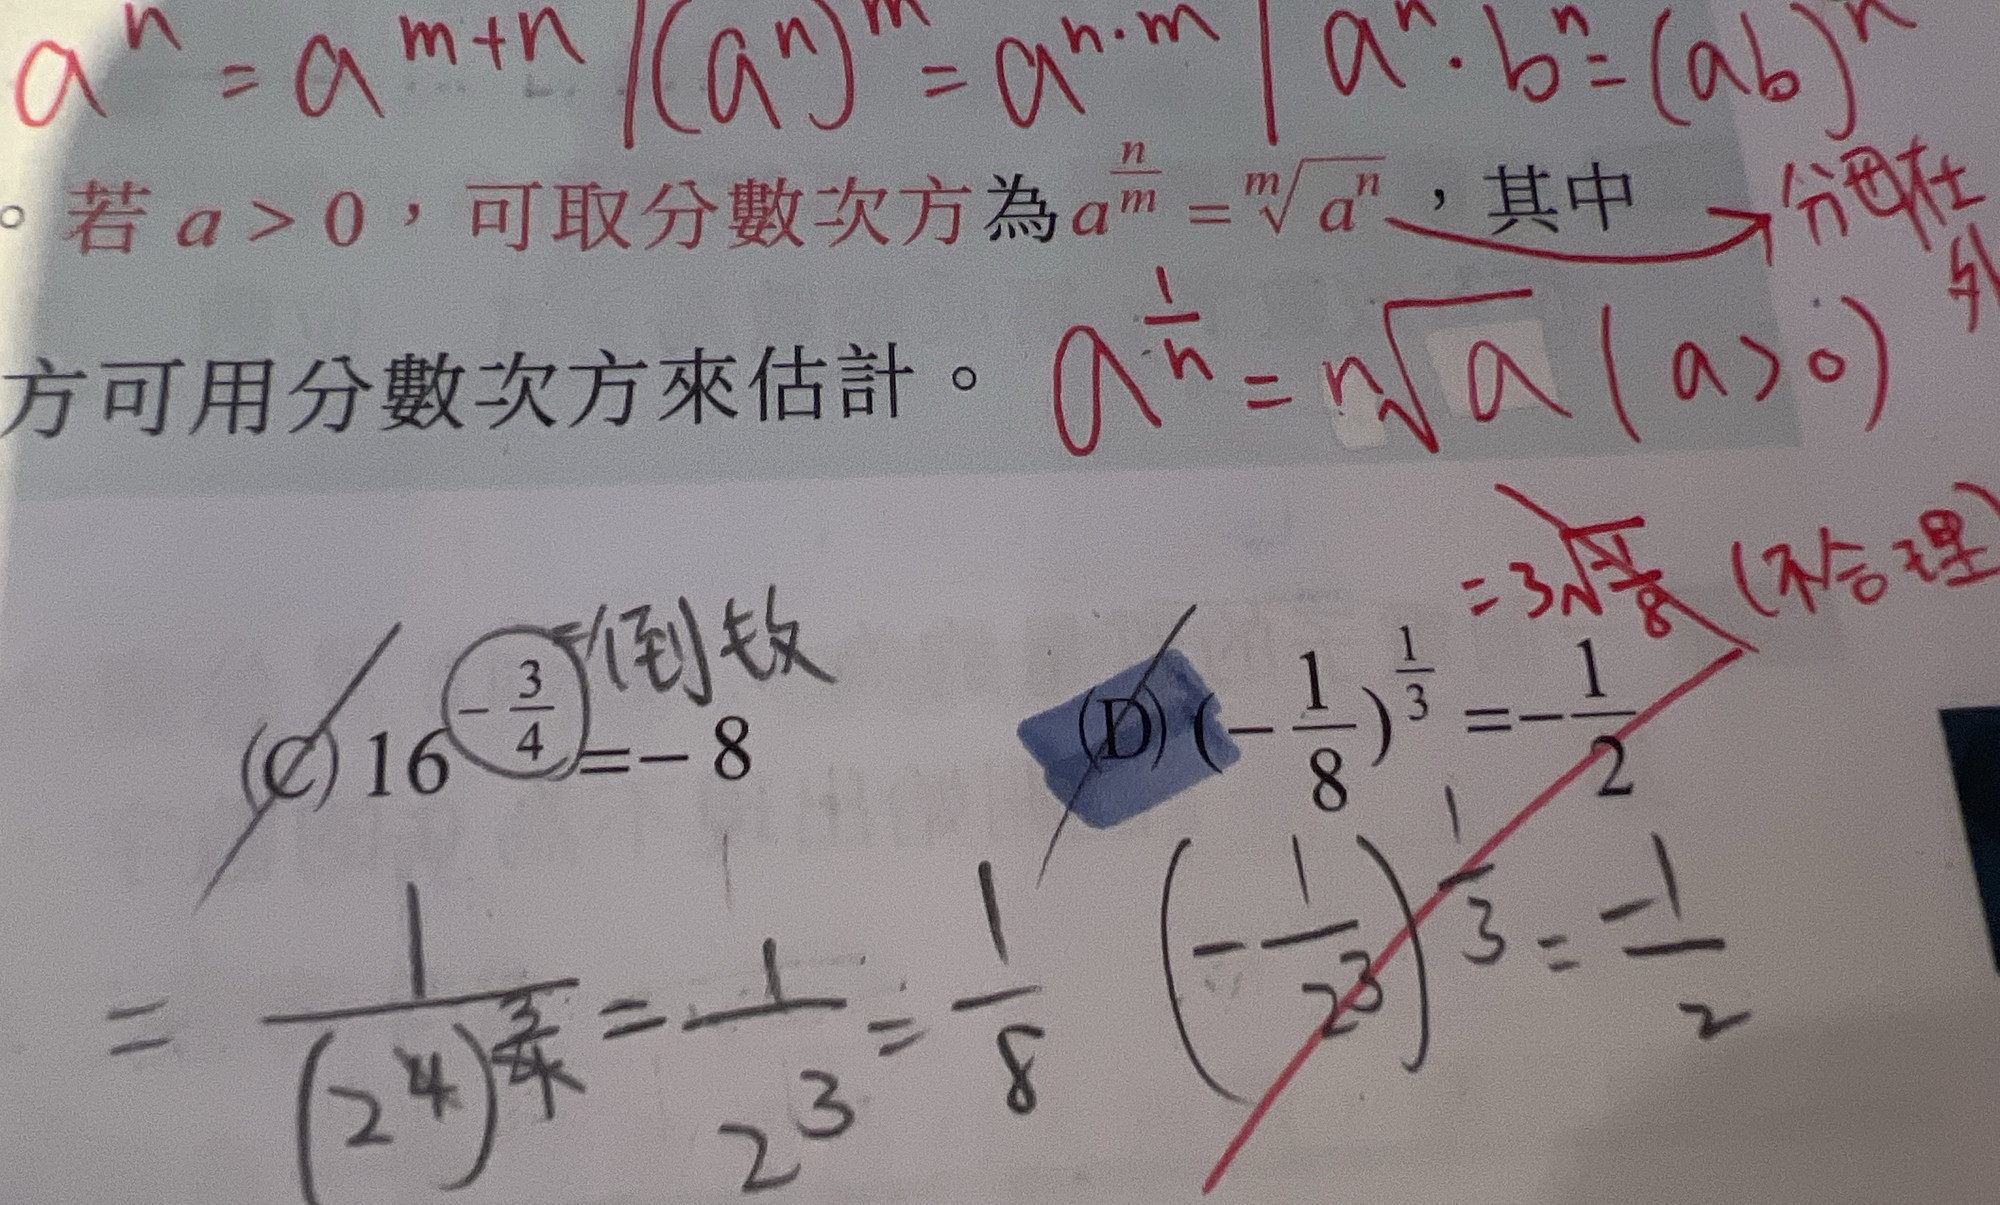 aⁿ = a^{m+n} | (aⁿ)^m = a^{n·m} | aⁿ · bⁿ = (ab)ⁿ
。若 a > 0，可取分數次方為 a^{n/m} = ᵐ√(aⁿ)，其中 → 分母在外
方可用分數次方來估計。 a^{1/n} = ⁿ√a (a > 0)
= 3√(-1/8) (不合理)
倒敉
(C) 16^{-3/4} = -8
(D) (-1/8)^{1/3} = -1/2
= 1/(2⁴)^{3/4} = 1/2³ = 1/8
(-1/2³)^{1/3} = -1/2